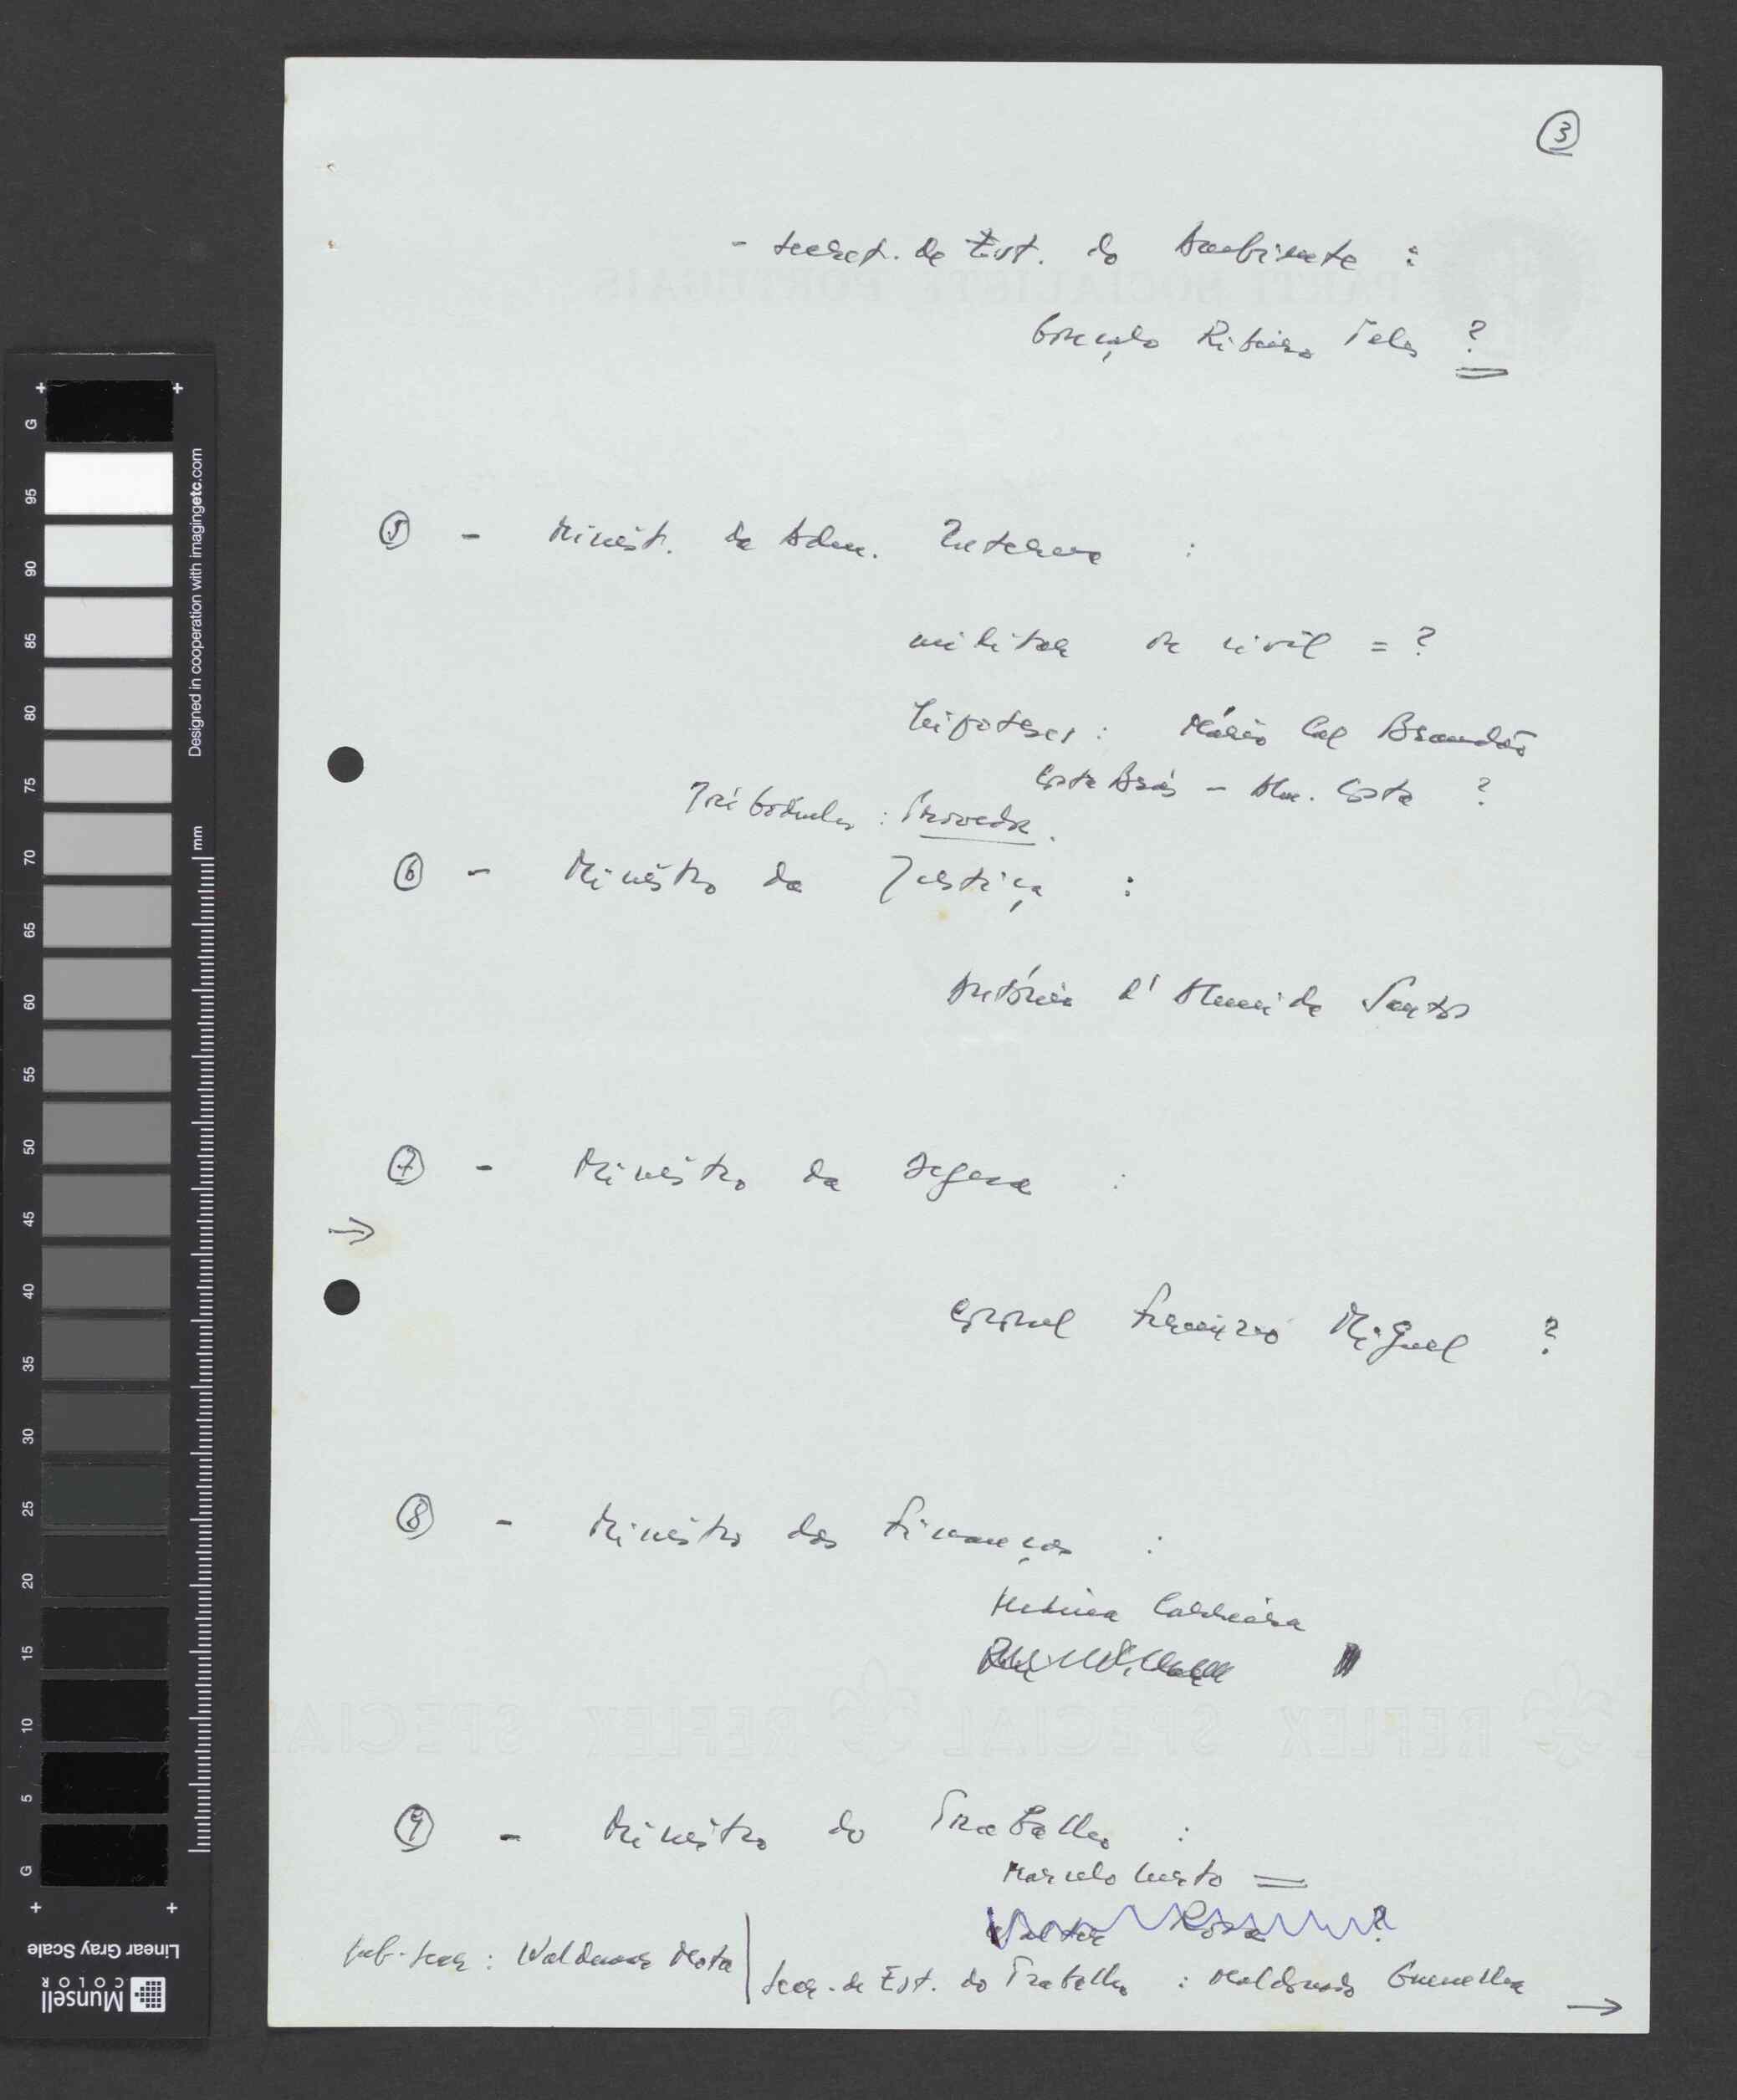 3
- Secret. de Est. do Ambiente :
Gonçalo Ribeiro Teles ?
5 - Minist. da Adm. Interna :
militar ou civil = ?
hipoteses : Mário Cal Brandão
Costa Brás - Alm. Costa ?
: Provedor.
6 - Ministro da Justiça :
António d'Almeida Santos
7 - Ministro da Defesa :
→
Coronel Firmino Miguel ?
8 - Ministro das Finanças :
Medina Carreira
9 - Ministro do Trabalho :
Marcelo Curto =
Walter Rosa ?
Sub-Secr : Waldemar Mota
Secr. de Est. do Trabalho : Maldonado Gonelha
→
PARTI SOCIALISTE PORTUGAIS
REFLEX SPECIAL REFLEX SPECIAL
Designed in cooperation with imagingetc.com
mm
G 95 90 85 80 75 70 65 60 55 50 45 40 35 30 25 20 15 10 5 G
Linear Gray Scale
Munsell
COLOR